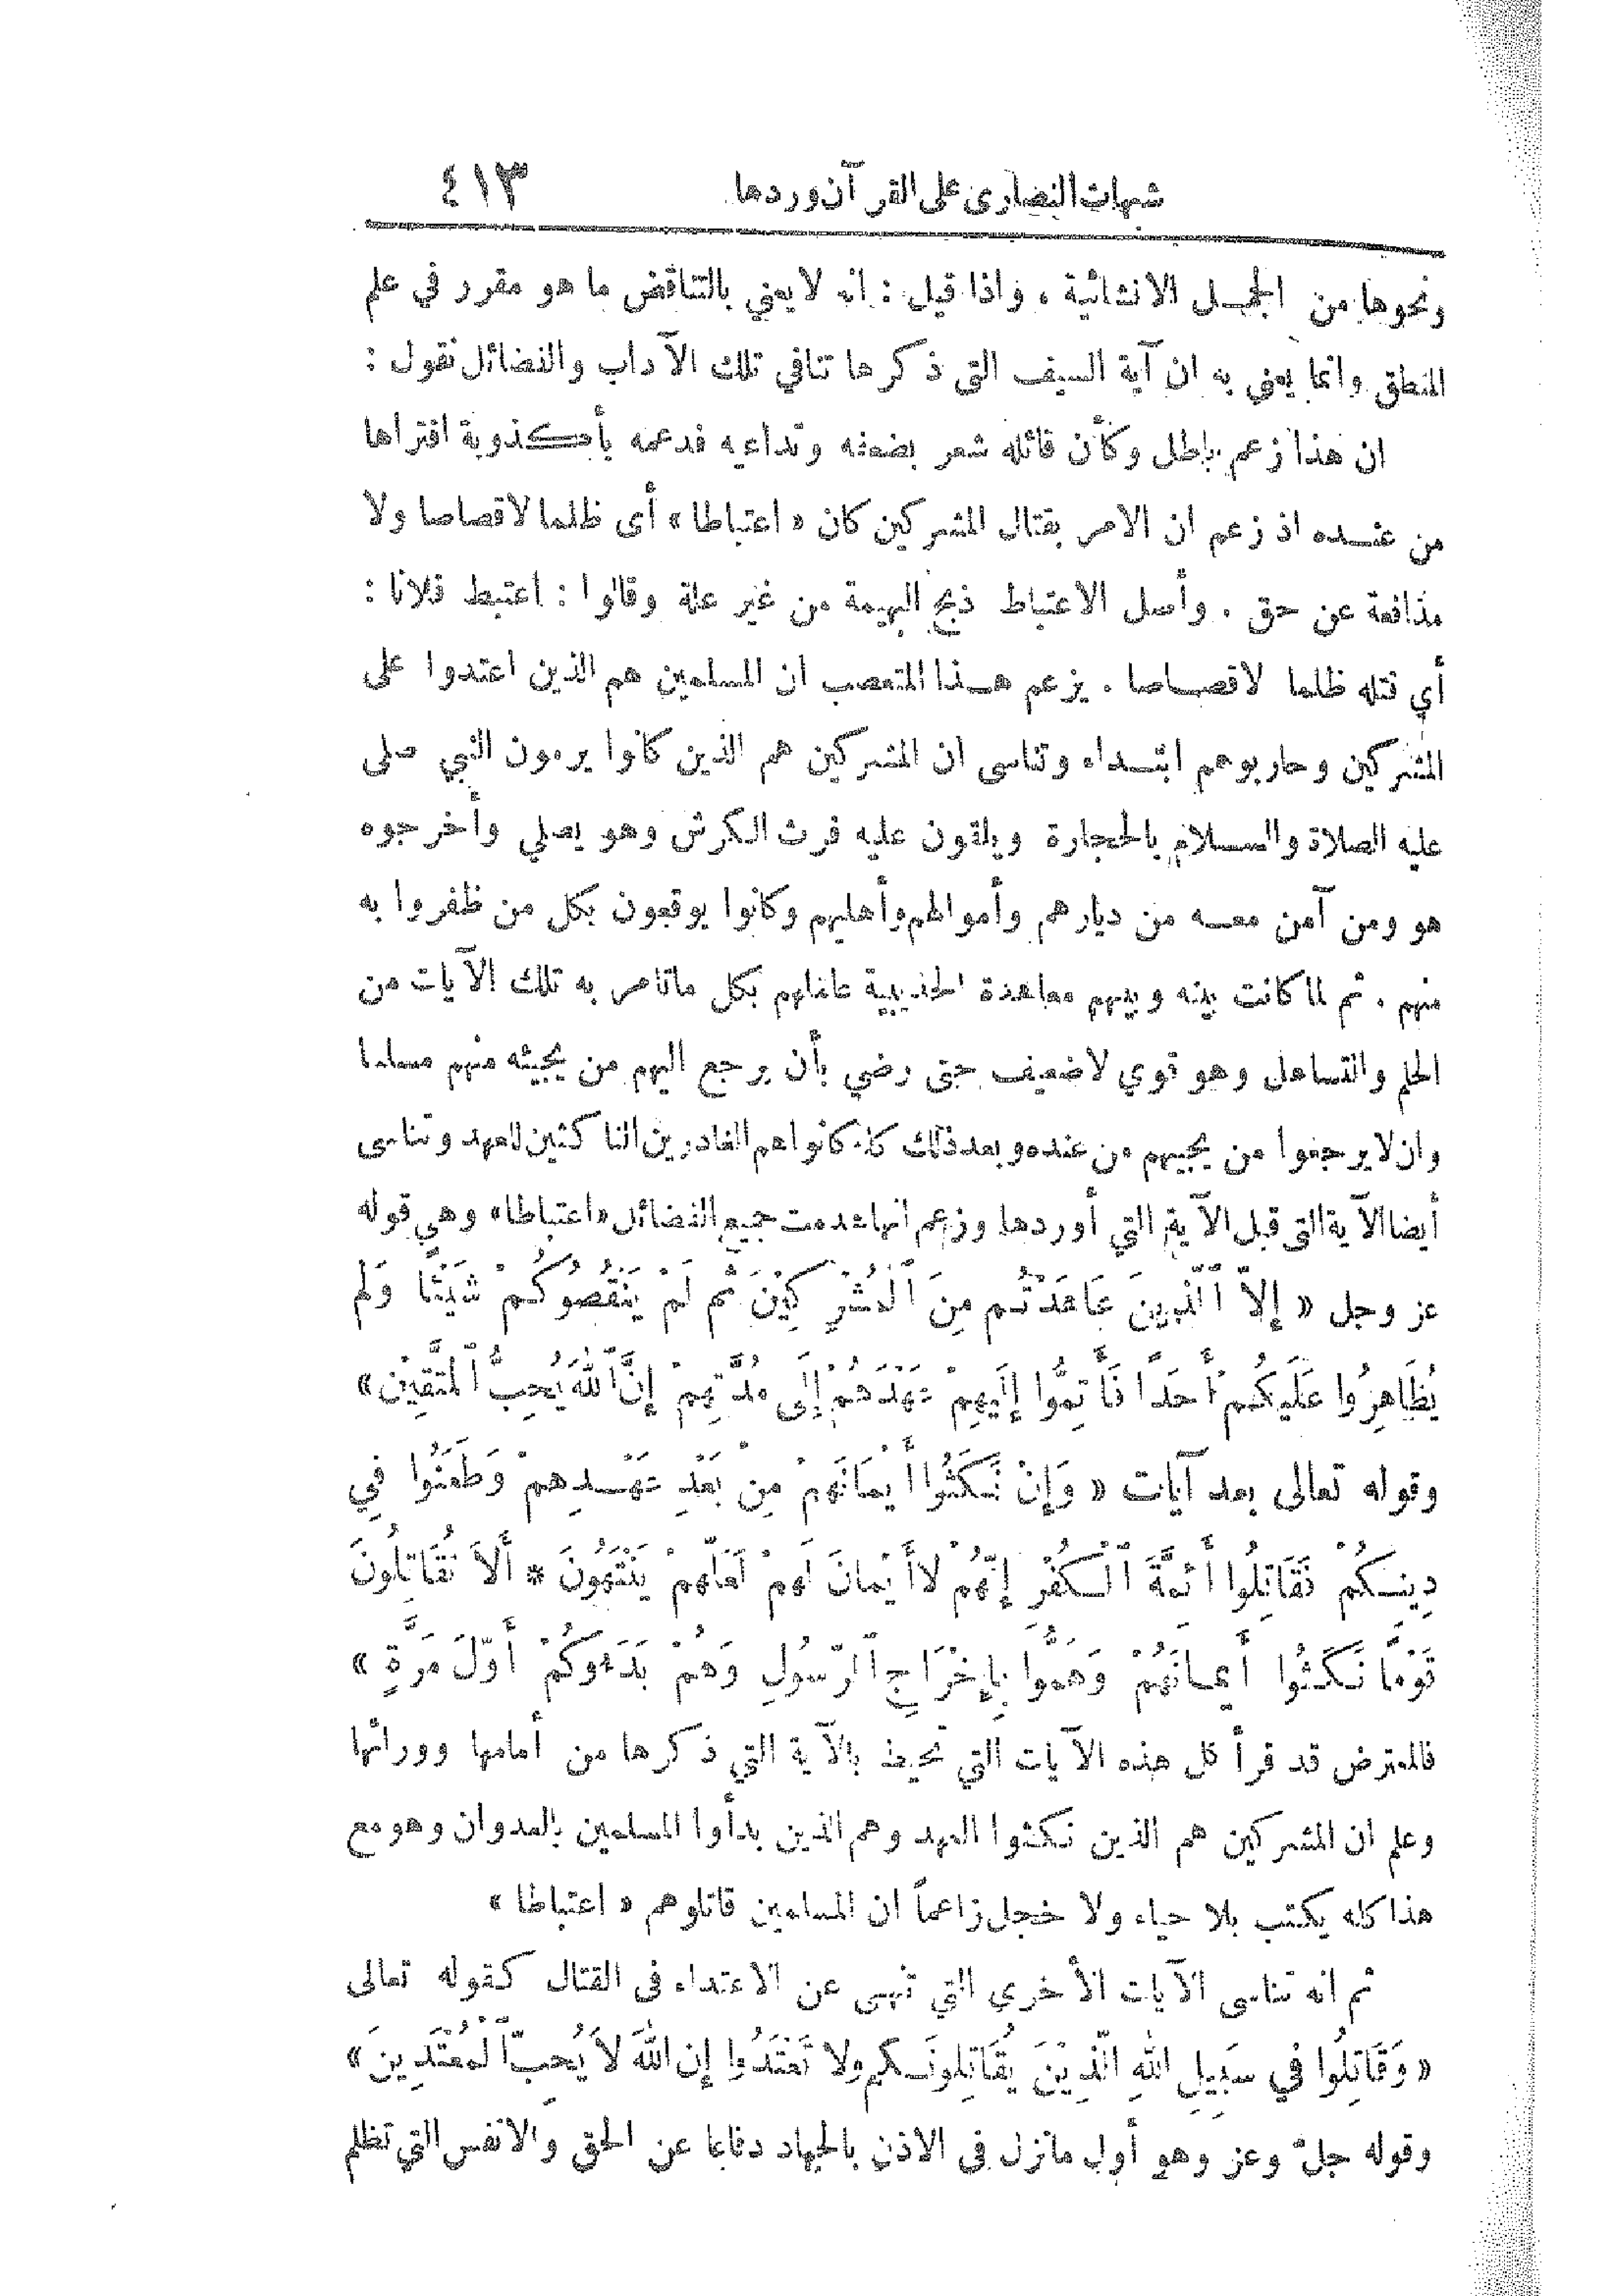 شبهات النصارى على القرآن وردها ٤١٣
ونحوها من الجمل الانشائية ، واذا قيل : انه لا يعني بالتناقض ما هو مقرر في علم
المنطق وانما يعني به ان آية السيف التي ذكرها تنافي تلك الآداب والفضائل نقول :
ان هذا زعم باطل وكأن قائله شعر بضعفه وتداعيه فدعمه بأكذوبة افتراها
من عنده اذ زعم ان الامر بقتال المشركين كان « اعتباطا » أى ظلما لا قصاصا ولا
مدافعة عن حق . وأصل الاعتباط ذبح البهيمة من غير علة وقالوا : اعتبط فلانا :
أي قتله ظلما لا قصاصا . يزعم هذا المتعصب ان المسلمين هم الذين اعتدوا على
المشركين وحاربوهم ابتداء وتناسى ان المشركين هم الذين كانوا يرمون النبي صلى
عليه الصلاة والسلام بالحجارة ويلقون عليه فرث الكرش وهو يصلي وأخرجوه
هو ومن آمن معه من ديارهم وأموالهم وأهليهم وكانوا يوقعون بكل من ظفروا به
منهم . ثم لما كانت بينه وبينهم معاهدة الحديبية عاملهم بكل ما تأمر به تلك الآيات من
الحلم والتساهل وهو قوي لا ضعيف حتى رضي بأن يرجع اليهم من يجيئه منهم مسلما
وان لا يرجعوا من يجيبهم من عنده وبعد ذلك كله كانوا هم الغادرين الناكثين للعهد وتناسى
أيضا الآية التي قبل الآية التي أوردها وزعم انها هدمت جميع الفضائل «اعتباطا» وهي قوله
عز وجل « إِلاَّ ٱلَّذِينَ عَاهَدْتُم مِنَ ٱلْمُشْرِكِيْنَ ثُمَّ لَمْ يَنْقُصُوكُمْ شَيْئًا وَلَمْ
يُظَاهِرُوا عَلَيكُمْ أَحَدًا فَأَتِمُّوا إِلَيهِمْ عَهْدَهُمْ إِلَى مُدَّتِهِمْ إِنَّ ٱللهَ يُحِبُّ ٱلْمُتَّقِيْن »
وقوله تعالى بعد آيات « وَإِنْ نَكَثُوا أَيْمَانَهمْ مِنْ بَعْدِ عَهْدِهِمْ وَطَعَنُوا فِي
دِينِكُمْ فَقَاتِلُوا أَئمَّةَ ٱلْكُفْرِ إِنَّهُمْ لا أَيْمانَ لَهمْ لَعَلَّهمْ يَنْتَهُونَ * أَلاَ تُقَاتِلُونَ
قَوْمًا نَكَثُوا أَيمانَهُمْ وَهَمُّوا بِإِخْرَاجِ ٱلرَّسُولِ وَهُمْ بَدَءوكُمْ أَوَّلَ مَرَّةٍ »
فالمعترض قد قرأ كل هذه الآيات التي تحيط بالآية التي ذكرها من أمامها وورائها
وعلم ان المشركين هم الذين نكثوا العهد وهم الذين بدأوا المسلمين بالعدوان وهو مع
هذا كله يكتب بلا حياء ولا خجل زاعماً ان المسلمين قاتلوهم « اعتباطا »
ثم انه تناسى الآيات الأخرى التي تنهى عن الاعتداء فى القتال كقوله تعالى
« وَقَاتِلُوا فِي سَبِيلِ اللهِ الَّذِيْنَ يُقَاتِلونَكم ولا تَعْتَدُوا إن اللهَ لاَ يُحِبّ ٱلْمُعْتَدِينَ »
وقوله جلّ وعز وهو أول ما نزل فى الاذن بالجهاد دفاعا عن الحق والانفس التي تظلم